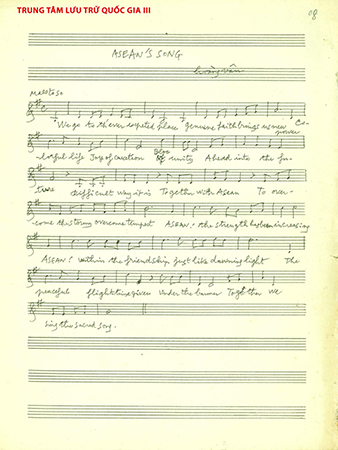 TRUNG TÂM LƯU TRỮ QUỐC GIA III
08
ASEAN'S SONG
Hoàng Vân
Maestoso
We go to the ever respected place genuine faith brings us new Co-
power
lorful life Joys of creation unity Ahead into the fu-
ture difficult way it is Together with Asean To over-
come this strong overcome tempest ASEAN! the strength has been increasing
ASEAN! within the friendship just like dawning light The
peaceful flight time given Under the banner Together We
Sing the sacred song.